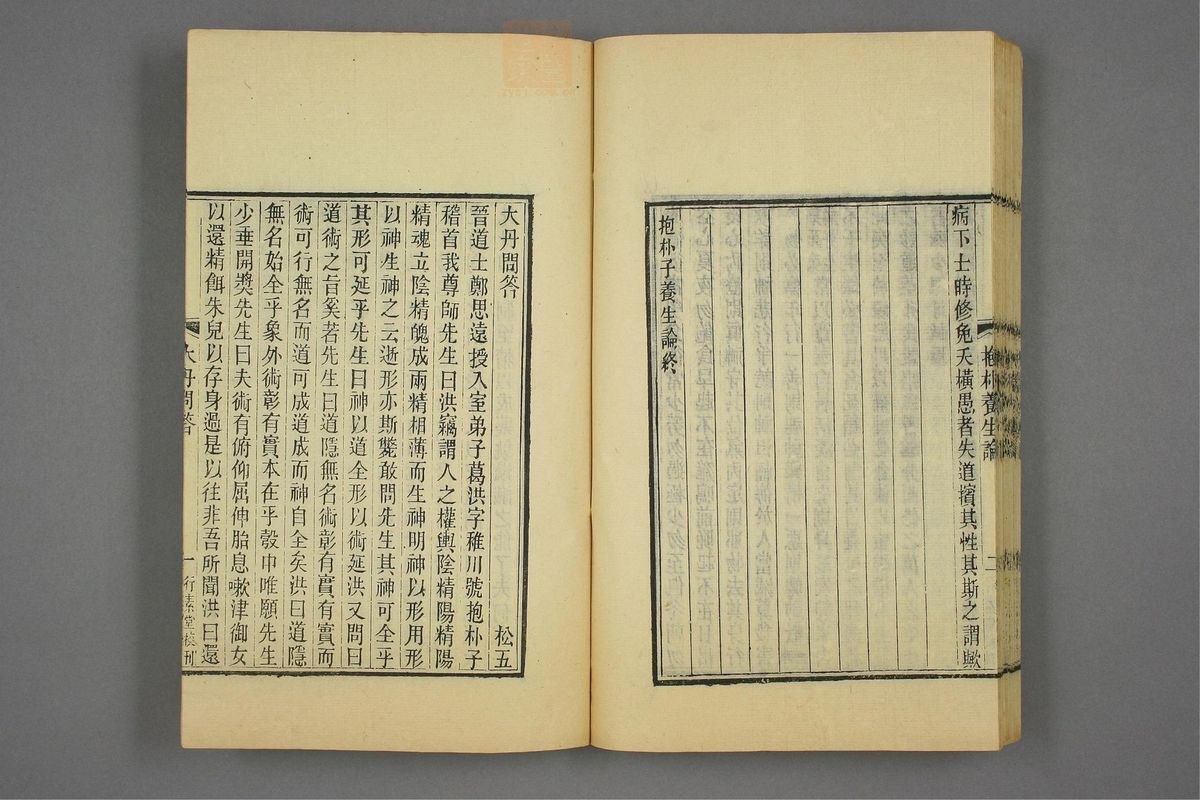 病下士時修免夭橫愚者失道擯其性其斯之謂歟
抱朴子養生論終
抱朴養生論
二
大丹問答
松五
晉道士鄭思遠授入室弟子葛洪字稚川號抱朴子
稽首我尊師先生曰洪竊謂人之權輿陰精陽精陽
精魂立陰精魄成兩精相薄而生神明神以形用形
以神生神之云逝形亦斯斃敢問先生其神可全乎
其形可延乎先生曰神以道全形以術延洪又問曰
道術之旨奚若先生曰道隱無名術彰有實有實而
術可行無名而道可成道成而神自全矣洪曰道隱
無名始全乎象外術彰有實本在乎彀中唯願先生
少垂開獎先生曰夫術有俯仰屈伸胎息嗽津御女
以還精餌朱兒以存身過是以往非吾所聞洪曰還
大丹問答
一
行素堂
刊